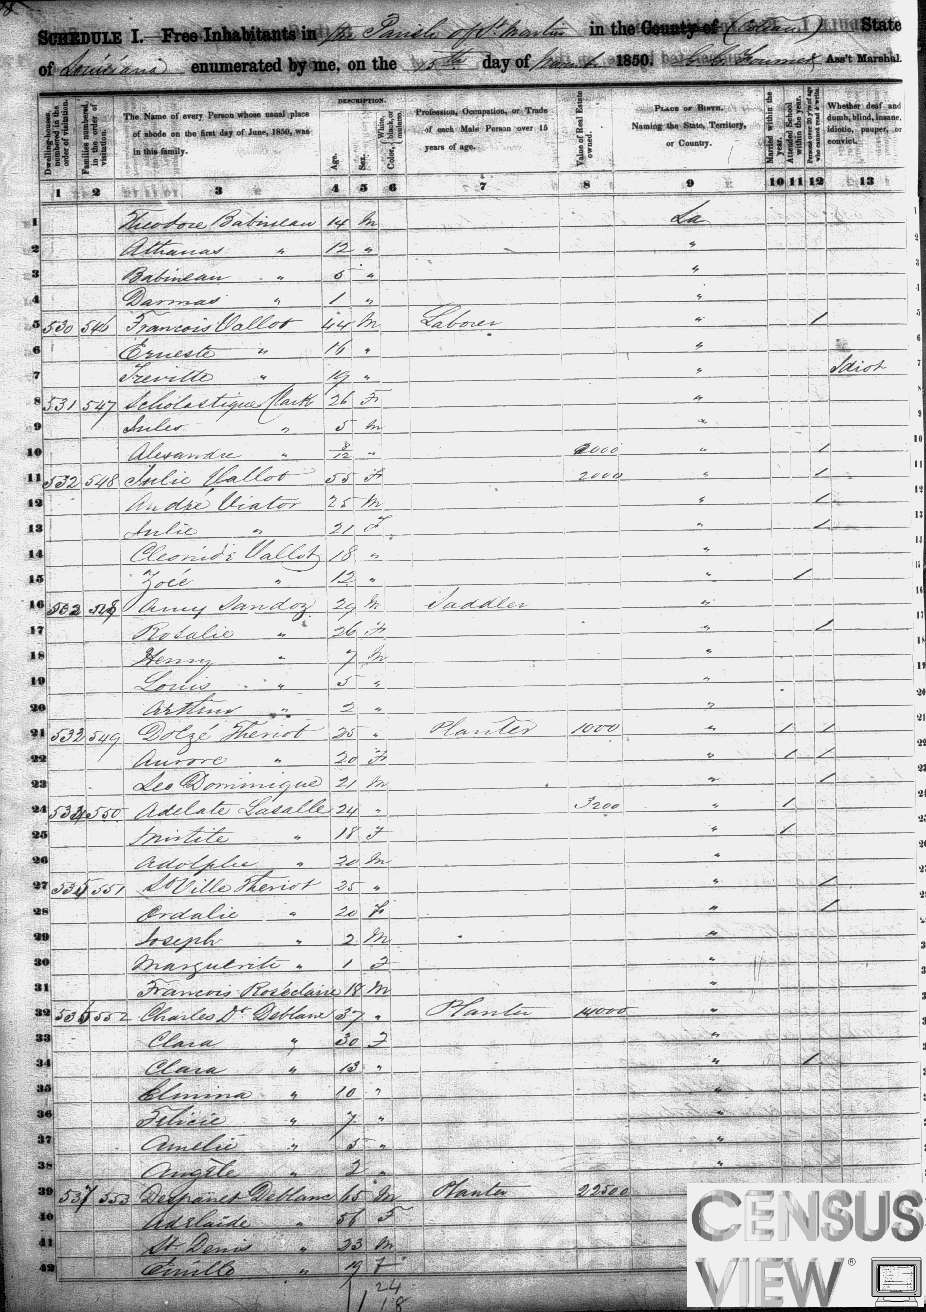 SCHEDULE I.—Free Inhabitants in the Parish of St Martin in the County of State
of Louisiana enumerated by me, on the 15th day of 1850. Ass't Marshal.
Dwelling-houses numbered in the order of visitation.
Families numbered in the order of visitation.
The Name of every Person whose usual place of abode on the first day of June, 1850, was in this family.
DESCRIPTION.
Age.
Sex.
Color, White, black, or mulatto.
Profession, Occupation, or Trade of each Male Person over 15 years of age.
Value of Real Estate owned.
PLACE OF BIRTH. Naming the State, Territory, or Country.
Married within the year.
Attended School within the year.
Persons over 20 y'rs of age who cannot read & write.
Whether deaf and dumb, blind, insane, idiotic, pauper, or convict.
1 2 3 4 5 6 7 8 9 10 11 12 13
1 Theodore Babineau 14 M La 1
2 Athanas " 12 " " 2
3 Babineau " 5 " " 3
4 Darmas " 1 " " 4
5 530 546 Francois Vallot 44 M Laborer " / 5
6 Erneste " 16 " " 6
7 Treville " 19 " " Idiot 7
8 531 547 Scholastique Clark 26 F " 8
9 Jules " 5 M " 9
10 Alexandre " 8/12 " 2000 " / 10
11 532 548 Julie Vallot 55 F 2000 " / 11
12 André Viator 25 M " / 12
13 Julie " 21 F " / 13
14 Cleonide Vallot 18 " " 14
15 Zoé " 12 " " / 15
16 532 548 Amy Sandoz 29 M Saddler " 16
17 Rosalie " 26 F " / 17
18 Henry " 7 M " 18
19 Louis " 5 " " 19
20 Arthur " 2 " " 20
21 533 549 Dolzé Theriot 25 " Planter 1000 " / / 21
22 Aurore " 20 F " / / 22
23 Leo Dominique 21 M " / 23
24 534 550 Adelate Lasalle 24 " 3200 " / 24
25 " 18 F " / 25
26 Adolphe " 20 M " 26
27 535 551 St Ville Theriot 25 " " / 27
28 Ordalie " 20 F " / 28
29 Joseph " 2 M " 29
30 Marguerite " 1 F " 30
31 Francois Roséclaire 18 M " 31
32 536 552 Charles Dr Deblanc 37 " Planter 14000 "
33 Clara " 30 F "
34 Clara " 13 " " /
35 Elmina " 10 " "
36 Felicie " 7 " "
37 Amelie " 5 " "
38 Angéle " 2 " "
39 537 553 Despanet Deblanc 65 M Planter 22500
40 Adelaide " 56 F
41 St Denis " 23 M
42 " 19 F
24
18
CENSUS
VIEW®